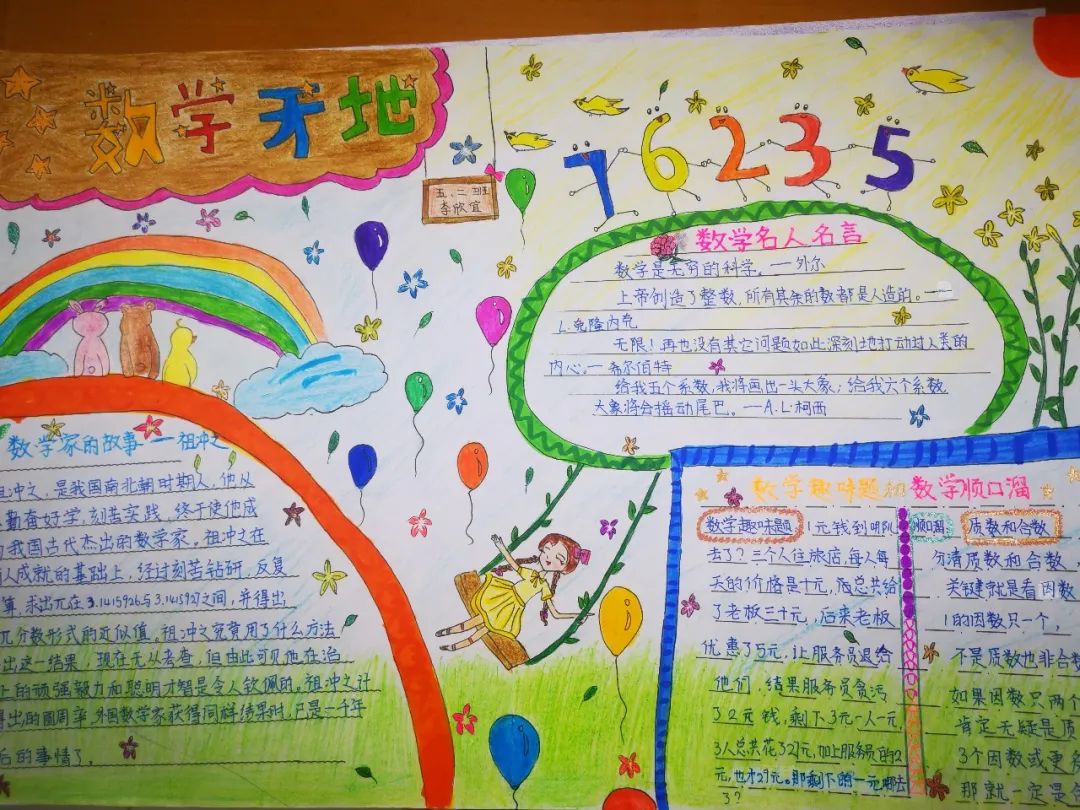 数学天地
五、三班
李欣宜
76235
数学名人名言
数学是无穷的科学。—外尔
上帝创造了整数,所有其余的数都是人造的。—
L·克隆内克
无限!再也没有其它问题如此深刻地打动过人类的
内心。—希尔伯特
给我五个系数,我将画出一头大象;给我六个系数
大象将会摇动尾巴。—A.L·柯西
数学家的故事—祖冲之
祖冲之,是我国南北朝时期人,他从
勤奋好学,刻苦实践,终于使他成
我国古代杰出的数学家。祖冲之在
人成就的基础上,经过刻苦钻研,反复
算,求出兀在3.1415926与3.1415927之间,并得出
兀分数形式的近似值,祖冲之究竟用了什么方法
出这一结果,现在无从考查,但由此可见他在治
上的顽强毅力和聪明才智是令人钦佩的。祖冲之计
得出的圆周率,外国数学家获得同样结果时,已是一千年
后的事情了。
数学趣味题和数学顺口溜
数学趣味题 1元钱到哪队
去了?三个人住旅店,每人每
天的价格是十元,总共给
了老板三十元,后来老板
优惠了5元,让服务员退给
他们,结果服务员贪污
了2元钱,剩下3元一人一元
3人总共花了27元,加上服务员的2
元,也才29元。那剩下的一元哪去
了?
顺口溜 质数和合数
分清质数和合数,
关键就是看因数
1的因数只一个,
不是质数也非合数
如果因数只两个
肯定无疑是质
3个因数或更多
那就一定是合